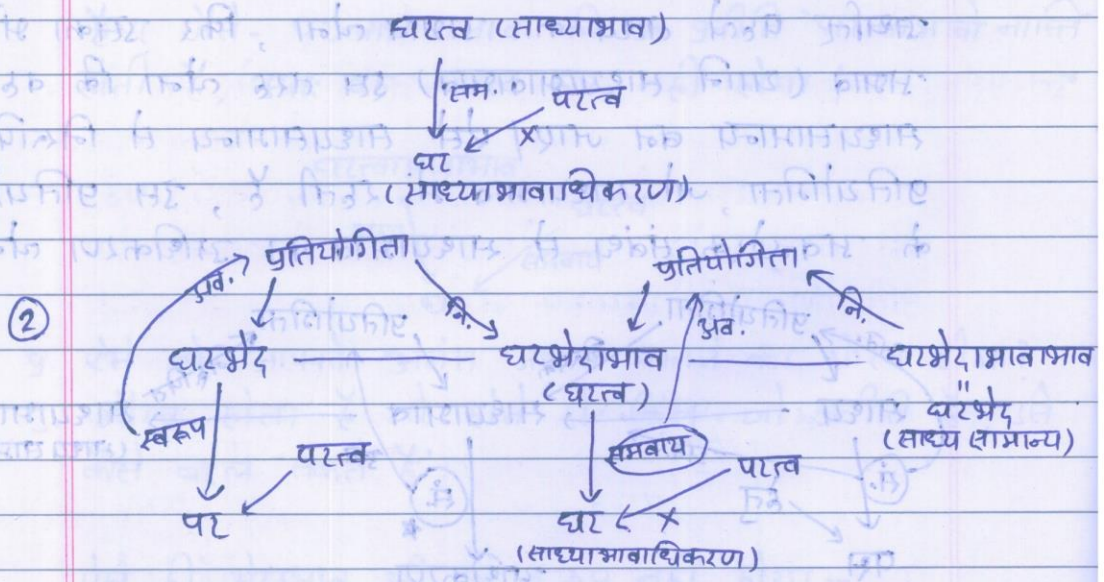 घटत्व (साध्याभाव)
सम. पटत्व
×
घट
(साध्याभावाधिकरण)
प्रतियोगिता प्रतियोगिता
अव. नि. अव. नि.
②
घटभेद घटभेदाभाव घटभेदाभावाभाव
(घटत्व) "
घटभेद
(साध्य सामान्य)
स्वरूप पटत्व समवाय पटत्व
पट घट ×
(साध्याभावाधिकरण)